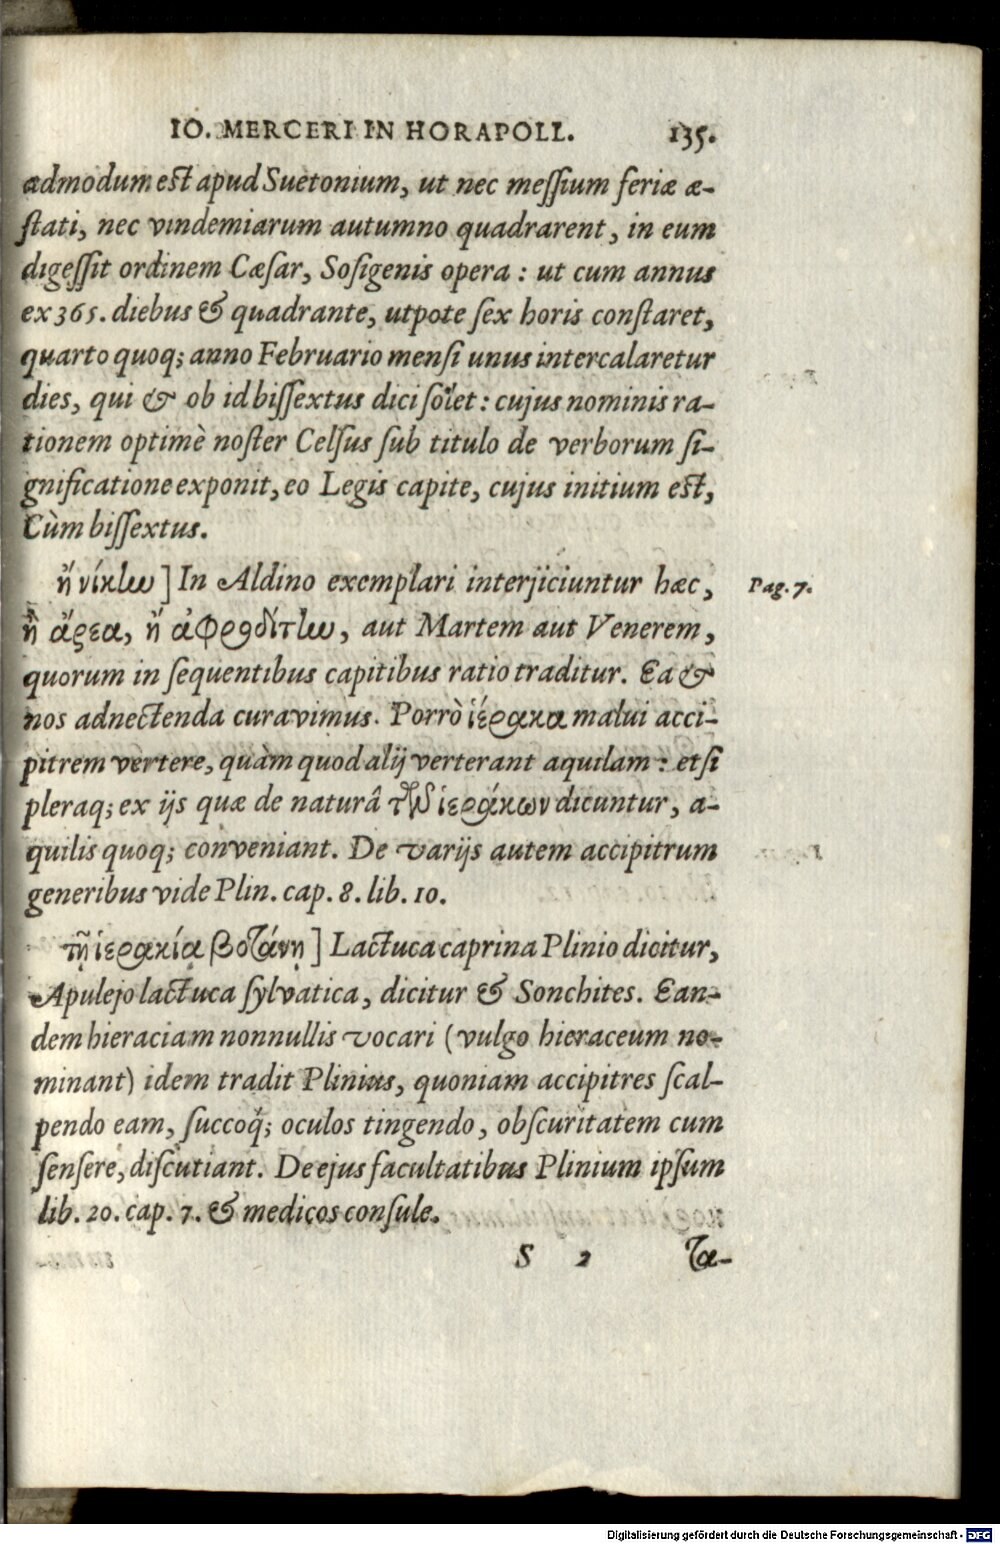 IO. MERCERI IN HORAPOLL. 135.
admodum est apud Suetonium, ut nec meſſium feriæ æ-
ſtati, nec vindemiarum autumno quadrarent, in eum
digeſſit ordinem Cæſar, Soſigenis opera: ut cum annus
ex 365. diebus & quadrante, utpote ſex horis conſtaret,
quarto quoq; anno Februario menſi unus intercalaretur
dies, qui & ob id biſſextus dici ſolet: cujus nominis ra-
tionem optimè noſter Celſus ſub titulo de verborum ſi-
gnificatione exponit, eo Legis capite, cujus initium est,
Cùm biſſextus.
ἢ νίκην] In Aldino exemplari interjiciuntur hæc, Pag. 7.
ἢ ἄρεα, ἢ ἀφροδίτην, aut Martem aut Venerem,
quorum in ſequentibus capitibus ratio traditur. Ea &
nos adnectenda curavimus. Porrò ἱέρακα malui acci-
pitrem vertere, quàm quod alij verterant aquilam: etſi
pleraq; ex ijs quæ de naturâ τῶν ἱεράκων dicuntur, a-
quilis quoq; conveniant. De varijs autem accipitrum
generibus vide Plin. cap. 8. lib. 10.
τῇ ἱερακίᾳ βοτάνῃ] Lactuca caprina Plinio dicitur,
Apulejo lactuca ſylvatica, dicitur & Sonchites. Ean-
dem hieraciam nonnullis vocari (vulgo hieraceum no-
minant) idem tradit Plinius, quoniam accipitres ſcal-
pendo eam, ſuccoq́; oculos tingendo, obſcuritatem cum
ſenſere, diſcutiant. De ejus facultatibus Plinium ipſum
lib. 20. cap. 7. & medicos conſule.
S 2 Τα-
Digitalisierung gefördert durch die Deutsche Forschungsgemeinschaft - DFG